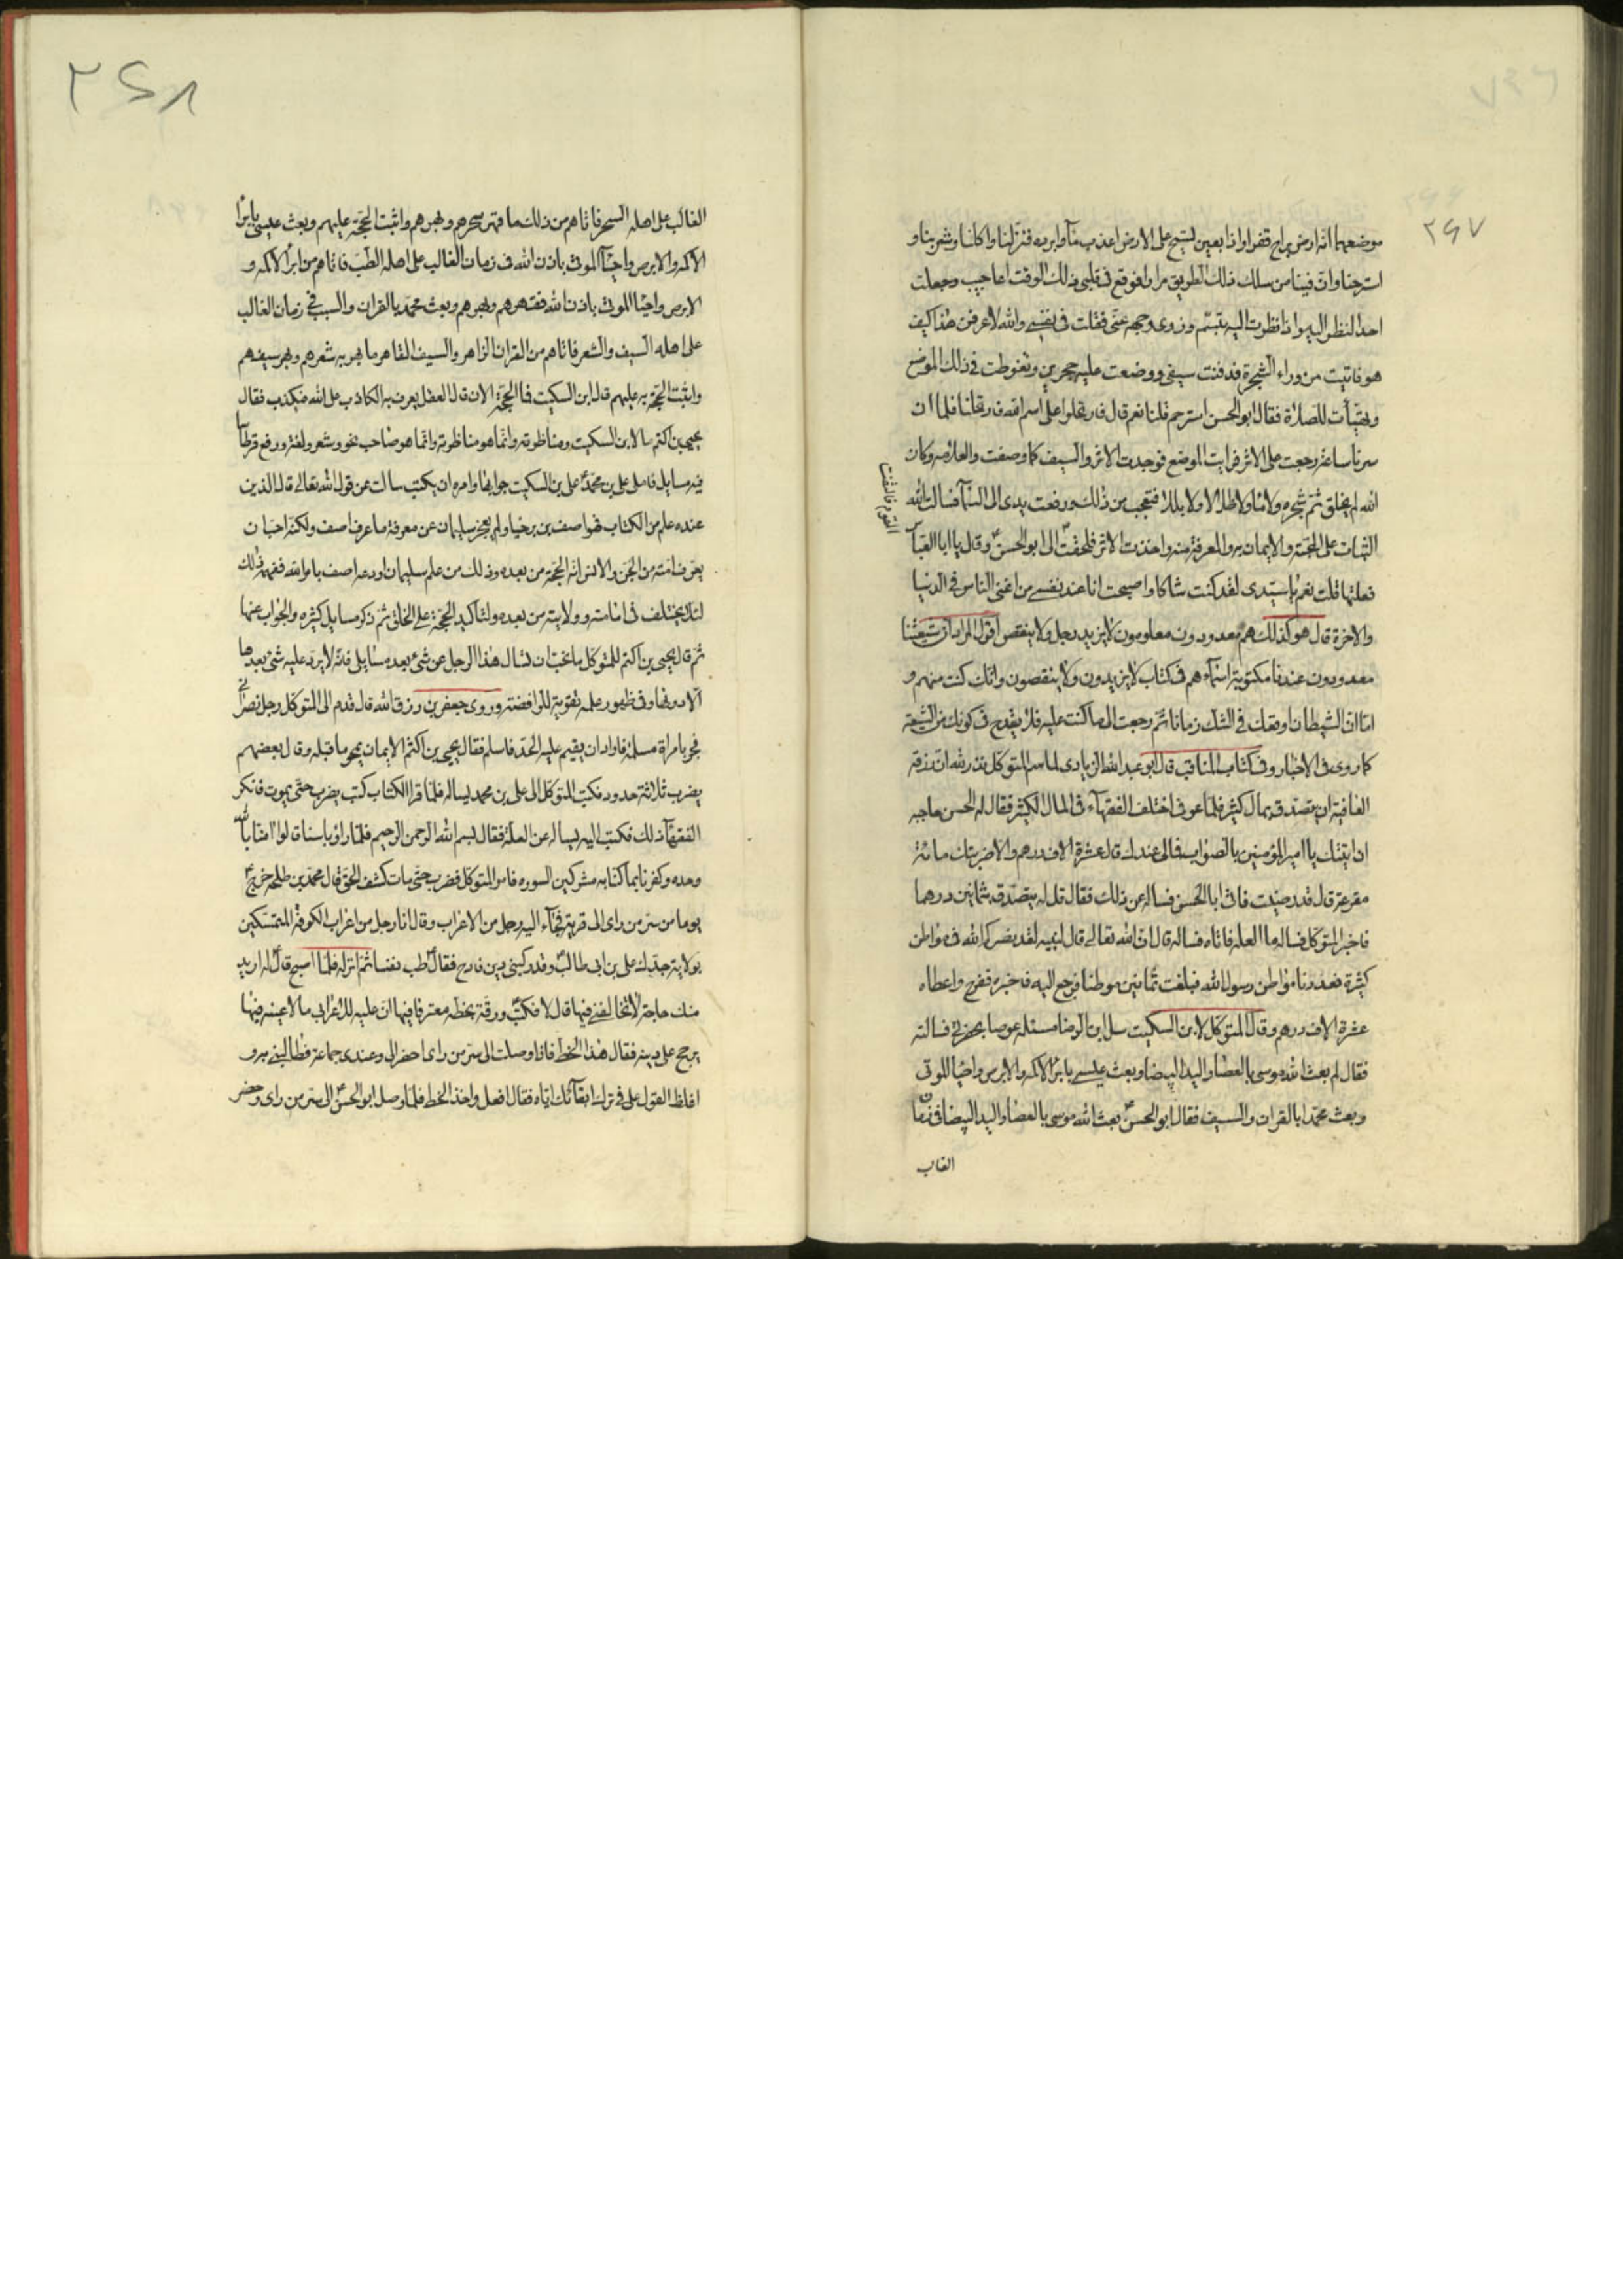 ٢٤٧
موضعهما انه ارض براح قفراء اذا بعين تسيح على الارض اعذب ماء وابرده فنزلنا واكلنا وشربنا و
استرحنا وان فينا من سلك ذلك الطريق مرارا فوقع فى قلبى ذلك الوقت اعاجيب وجعلت
احد النظر اليه واذا نظرت اليه تبسم وزوى وجهه عنى فقلت فى نفسى والله لاعرفن هذا كيف
هو فاتيت من وراء الشجرة فدفنت سيفى ووضعت عليه حجرين وتغوطت فى ذلك الموضع
وتهيأت للصلاة فقال ابو الحسن استرحتم قلنا نعم قال فارتحلوا على اسم الله فارتحلنا فلما ان
سرنا ساعة رجعت على الاثر فرايت الموضع فوجدت الاثر والسيف كما وصفت والعلامه وكان
الله لم يخلق ثم شجره ولا ماء ولا ظلالا ولا بللا فتعجب من ذلك ورفعت يدى الى السماء فسالت الله
الثبات على المحبة والايمان به والمعرفة منه واخذت الاثر فلحقت القوم فالتفت الى ابو الحسن ع وقال يا ابا العباس
فعلتها قلت نعم يا سيدى لقد كنت شاكا واصبحت انا عند نفسى من اغنى الناس فى الدنيا
والاخرة قال هو كذلك هم معدودون معلومون لا يزيد رجل ولا ينقص اقول المراد ان شيعتنا
معدودون عندنا مكتوبة اسماءهم فى كتاب لا يزيدون ولا ينقصون وانك كنت منهم و
اما ان الشيطان اوقعك فى الشك زمانا ثم رجعت الى ما كنت عليه فلا يقدح فى كونك من الشيعة
كما روى فى الاخبار وفى كتاب المناقب قال ابو عبد الله الزيادى لما سم المتوكل نذر لله ان رزقه
العافية ان يتصدق بمال كثير فلما عوفى اختلف الفقهاء فى المال الكثير فقال له الحسن حاجبه
ان اتيتك يا امير المؤمنين بالصواب فمالى عندك قال عشرة الاف درهم والا ضربتك مائة
مقرعة قال قد رضيت فاتى ابا الحسن فساله عن ذلك فقال قل له يتصدق بثمانين درهما
فاخبر المتوكل فساله ما العلة فاتاه فساله قال ان الله تعالى قال لنبيه لقد نصركم الله فى مواطن
كثيرة فعددنا مواطن رسول الله فبلغت ثمانين موطنا فرجع اليه فاخبره ففرح واعطاه
عشرة الاف درهم وقال المتوكل لابن السكيت سل ابن الرضا مسئلة عوصا بحضرتى فساله
فقال لم بعث الله موسى بالعصا واليد البيضا وبعث عيسى بابراء الاكمه والابرص واحيا الموتى
وبعث محمدا بالقران والسيف فقال ابو الحسن ع بعث الله موسى بالعصا واليد البيضا فى زمان
الغالب
٢٤٨
الغالب على اهله السحر فاتاهم من ذلك ما قهر سحرهم وبهرهم واثبت الحجة عليهم وبعث عيسى بابراء
الاكمه والابرص واحياء الموتى باذن الله فى زمان الغالب على اهله الطب فاتاهم من ابراء الاكمه و
الابرص واحيا الموتى باذن الله فقهرهم وبهرهم وبعث محمد بالقران والسيف فى زمان الغالب
على اهله السيف والشعر فاتاهم من القران الزاهر والسيف القاهر ما بهر به شعرهم وبهر سيفهم
واثبت الحجة به عليهم قال ابن السكيت فما الحجة الان قال العقل يعرف به الكاذب على الله فيكذب فقال
يحيى بن اكثم ما لابن السكيت ومناظرته وانما هو صاحب نحو وشعر ولغة ورفع قرطاسا
فيه مسايل فاملى على بن محمد ع على بن السكيت جوابها وامره ان يكتب سالت عن قول الله تعالى قال الذى
عنده علم من الكتاب فهو اصف بن برخيا ولم يعجز سليمان عن معرفة ما عرف اصف ولكنه احب ان
يعرف امته من الجن والانس انه الحجة من بعده وذلك من علم سليمان اودعه اصف بامر الله ففهمه ذلك
لئلا يختلف فى امامته وولايته من بعده ولتاكيد الحجة على الخلق ثم ذكر مسايل كثيره والجواب عنها
ثم قال يحيى بن اكثم للمتوكل ما نحب ان تسال هذا الرجل عن شئ بعد مسايلى فانه لا يرد عليه شئ بعدها
الا دونها وفى ظهور علمه تقوية للرافضة وروى جعفر بن رزق الله قال قدم الى المتوكل رجل نصرانى
فجر بامراة مسلمة فاراد ان يقيم عليه الحد فاسلم فقال يحيى بن اكثم الايمان يمحو ما قبله وقال بعضهم
يضرب ثلاثة حدود فكتب المتوكل الى على بن محمد يساله فلما قرا الكتاب كتب يضرب حتى يموت فانكر
الفقهاء ذلك فكتب اليه يساله عن العلة فقال بسم الله الرحمن الرحيم فلما راوا باسنا قالوا امنا بالله
وحده وكفرنا بما كنا به مشركين السوره فامر المتوكل فضرب حتى مات كشف الحق قال محمد بن طلحة خرج ع
يوما من سر من راى الى قرية فجاء اليه رجل من الاعراب وقال انا رجل من اعراب الكوفة المتمسكين
بولاية جدك على بن ابى طالب ع وقد ركبنى دين فادح فقال ع طب نفسا ثم انزله فلما اصبح قال ع له اريد
منك حاجة لا تخالفنى فيها قال لا فكتب ع ورقة بخطه معترفا فيها ان عليه للاعرابى مالا عينه فيها
يرجح على دينه فقال هذا الخط فاذا وصلت الى سر من راى احضر الى وعندى جماعة فطالبنى به و
اغلظ القول على فى ترك ابقائك اياه فقال افعل واخذ الخط فلما وصل ابو الحسن ع الى سر من راى وحضر